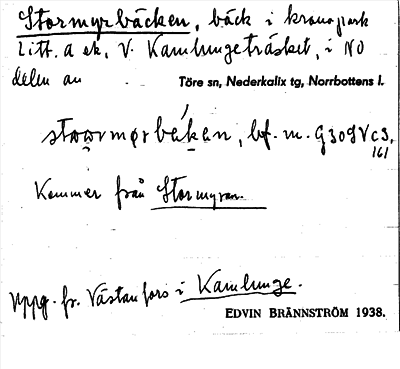 Stormyrbäcken, bäck i kronopark
Litt. a ek. V. Kamlungeträsket, i NO
delen av Töre sn, Nederkalix tg, Norrbottens l.
bf. m. G 309 V c 3,
161
Kommer från Stormyran.
Uppg. fr. Västanfors i Kamlunge.
EDVIN BRÄNNSTRÖM 1938.